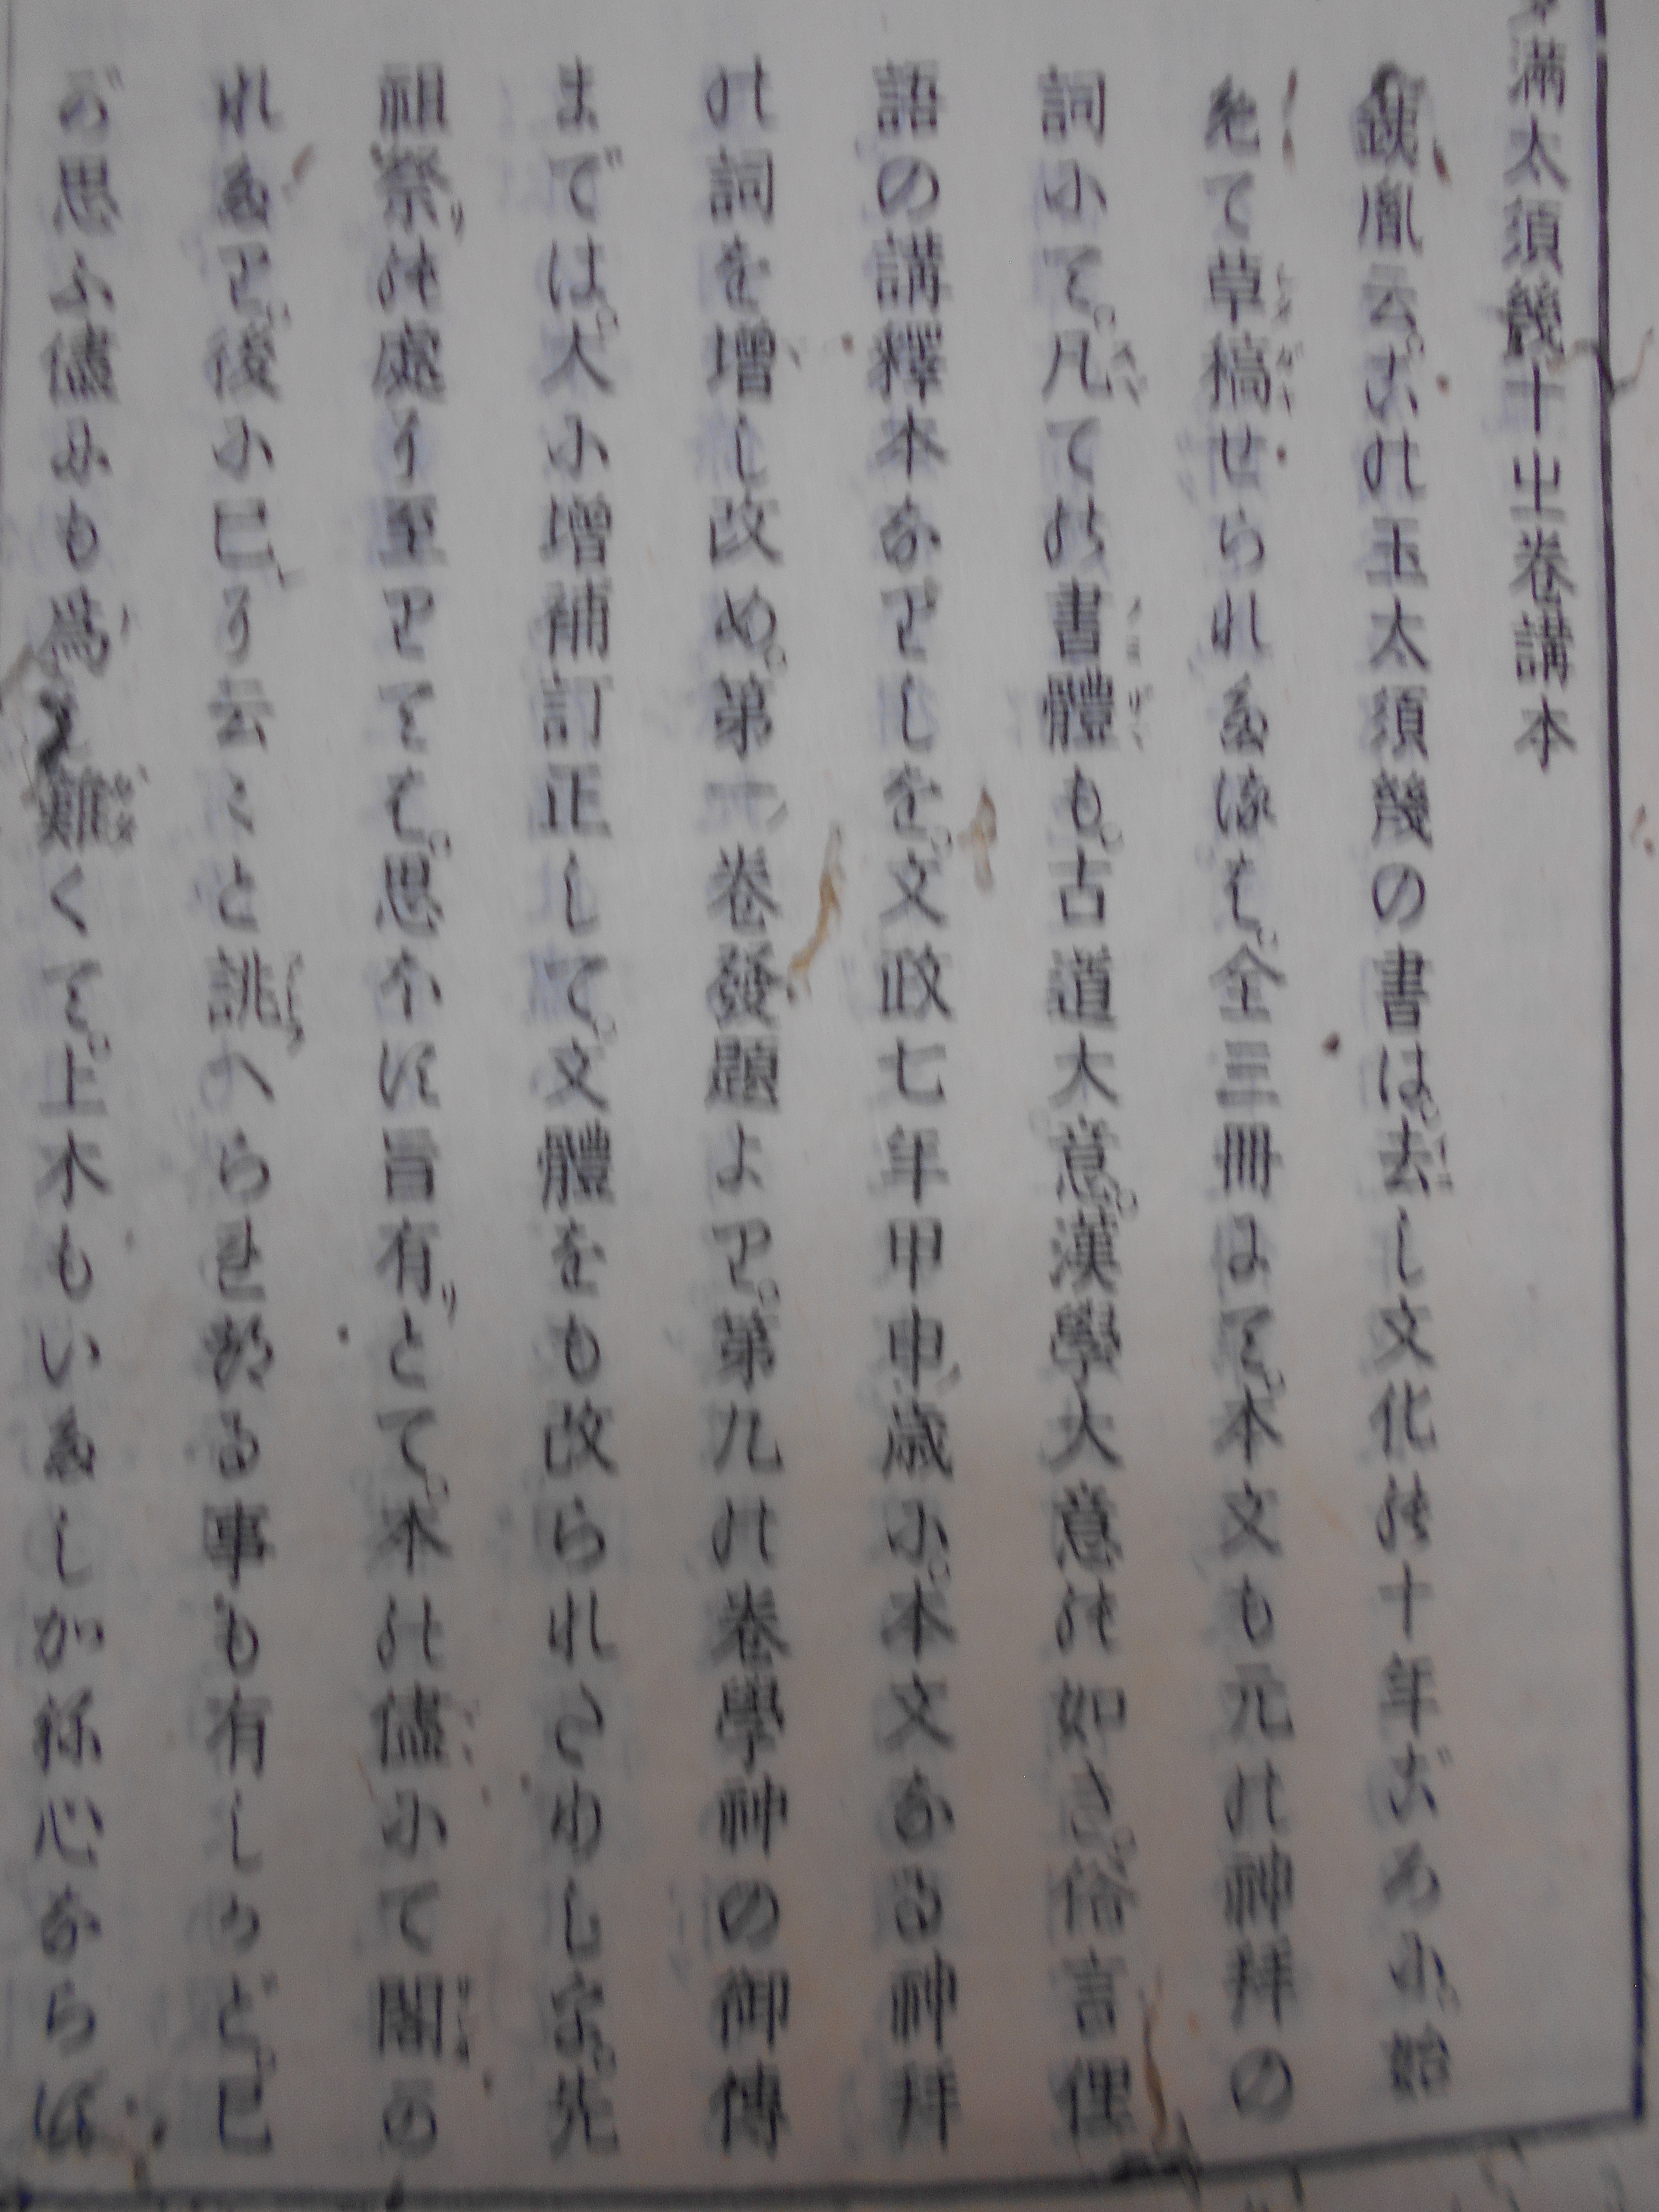 满太須幾十出卷講本
銕胤云。この玉太須幾の書は。去し文化の十年ごろに。始
めて草稿せられたるは。全三冊にて。本文も元の神拜の
詞にて。凡ての書體も。古道大意。漢學大意の如き。俗言俚
語の講釋本なりしを。文政七年甲申歳に。本文なる神拜
の詞を增し改め。第一卷發題より。第九の卷學神の御傳
までは。大に增補訂正して。文體をも改られさゆし を。先
祖祭の處に至りては。思ふに旨有とて。本の儘にて閣の
れたり。後に己に云々と誂へられたる事も有しかど。己
が思ふ儘にも爲し難くて。上木もいたしかね心ならば